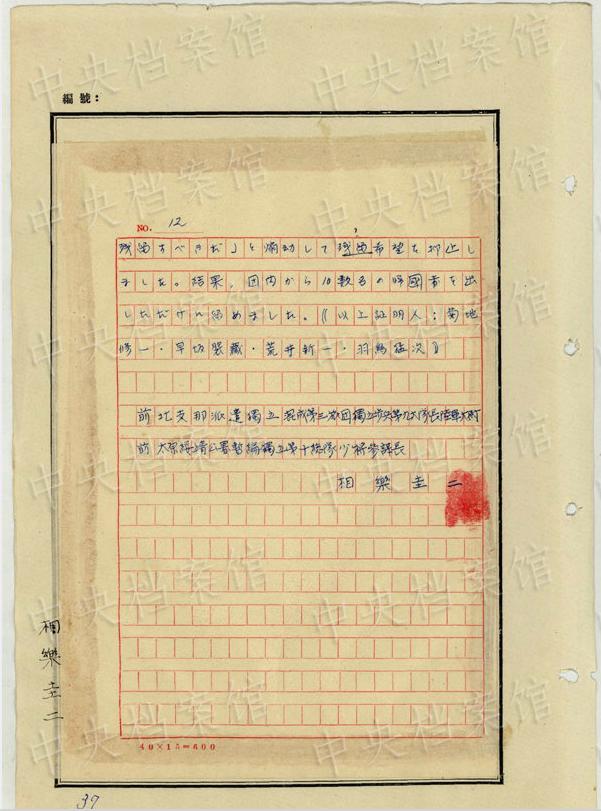 編號：
NO. 12
残留すべきだ」と煽動して残留希望を抑止し
ました。結果，団内から10数名の帰國者を出
しただけに留めました。《以上証明人；菊地
修一・早坂褧藏・荒井新一・羽鳥猛次》
前北支那派遣獨立混成第三旅団獨立歩兵第九大隊長陸軍大尉
前太原綏靖公署暫編獨立第十総隊少将参謀長
相樂圭二
相樂圭二
40×15=600
37
中央档案馆